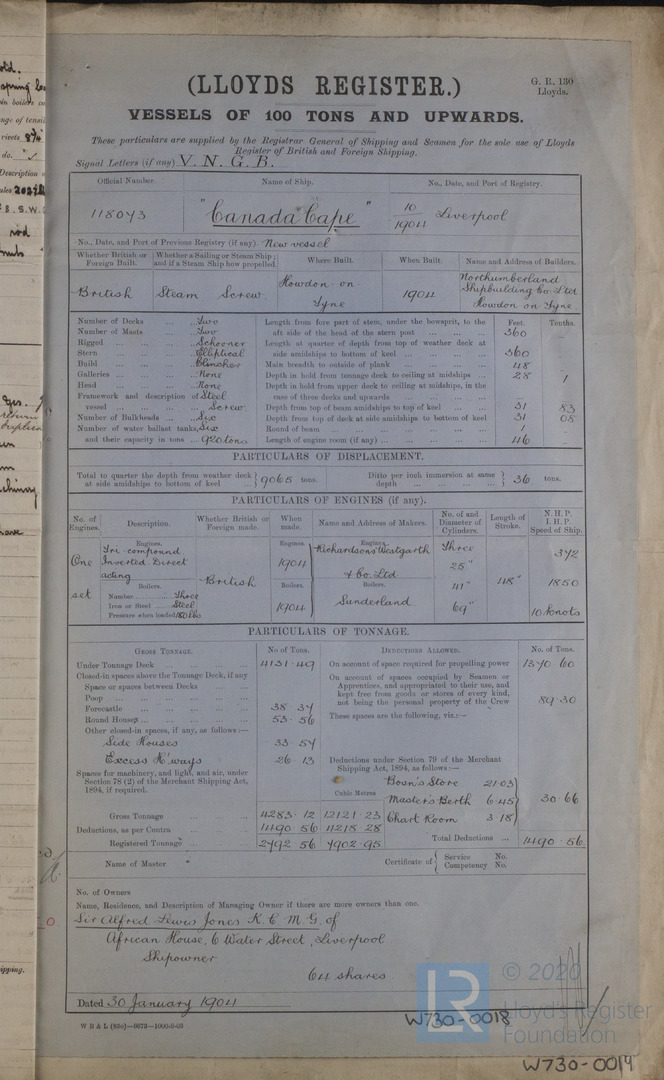 (LLOYDS REGISTER.)
G. R. 130
Lloyds.
VESSELS OF 100 TONS AND UPWARDS.
These particulars are supplied by the Registrar General of Shipping and Seamen for the sole use of Lloyds
Register of British and Foreign Shipping.
Signal Letters (if any) V. N. G. B.
Official Number. Name of Ship. No., Date, and Port of Registry.
118043 "Canada Cape" 10/1904 Liverpool
No., Date, and Port of Previous Registry (if any). New vessel
Whether British or Foreign Built. Whether a Sailing or Steam Ship; and if a Steam Ship how propelled. Where Built. When Built. Name and Address of Builders.
British Steam Screw Howdon on Tyne 1904 Northumberland Shipbuilding Co. Ltd Howdon on Tyne
Number of Decks ... Two
Number of Masts ... Two
Rigged ... Schooner
Stern ... Elliptical
Build ... Clincher
Galleries ... None
Head ... None
Framework and description of vessel ... Steel Screw
Number of Bulkheads ... Six
Number of water ballast tanks, Six
and their capacity in tons ... 920 tons
Feet. Tenths.
Length from fore part of stem, under the bowsprit, to the aft side of the head of the stern post ... 360 –
Length at quarter of depth from top of weather deck at side amidships to bottom of keel ... 360 –
Main breadth to outside of plank ... 48 –
Depth in hold from tonnage deck to ceiling at midships ... 28 1
Depth in hold from upper deck to ceiling at midships, in the case of three decks and upwards ... –
Depth from top of beam amidships to top of keel ... 31 83
Depth from top of deck at side amidships to bottom of keel 31 08
Round of beam ... 1 –
Length of engine room (if any) ... 46 –
PARTICULARS OF DISPLACEMENT.
Total to quarter the depth from weather deck at side amidships to bottom of keel ... 9065 tons. Ditto per inch immersion at same depth ... 36 tons.
PARTICULARS OF ENGINES (if any).
No. of Engines. Description. Whether British or Foreign made. When made. Name and Address of Makers. No. of and Diameter of Cylinders. Length of Stroke. N.H.P. I.H.P. Speed of Ship.
One set
Engines.
Tri-compound
Inverted Direct
acting
Boilers.
Number ... Three
Iron or Steel ... Steel
Pressure when loaded 180 lbs
British
Engines. 1904
Boilers. 1904
Engines.
Richardsons Westgarth
& Co. Ltd
Boilers.
Sunderland
Three
25"
41"
69"
48"
372
1850
10 knots
PARTICULARS OF TONNAGE.
GROSS TONNAGE. No of Tons.
Under Tonnage Deck ... 4131·49
Closed-in spaces above the Tonnage Deck, if any
Space or spaces between Decks ...
Poop ...
Forecastle ... 38·37
Round Houses ... 53·56
Other closed-in spaces, if any, as follows:—
Side Houses 33·57
Excess H'ways 26·13
Spaces for machinery, and light, and air, under Section 78 (2) of the Merchant Shipping Act, 1894, if required.
Cubic Metres
Gross Tonnage ... 4283·12 12121·23
Deductions, as per Contra ... 1490·56 4218·28
Registered Tonnage ... 2792·56 7902·95
DEDUCTIONS ALLOWED. No. of Tons.
On account of space required for propelling power 1370·60
On account of spaces occupied by Seamen or Apprentices, and appropriated to their use, and kept free from goods or stores of every kind, not being the personal property of the Crew 89·30
These spaces are the following, viz.:—
Deductions under Section 79 of the Merchant Shipping Act, 1894, as follows:—
Bosn's Store 21·03
Master's Berth 6·45
Chart Room 3·18
30·66
Total Deductions ... 1490·56
Name of Master
Certificate of { Service No.
Competency No.
No. of Owners
Name, Residence, and Description of Managing Owner if there are more owners than one.
Sir Alfred Lewis Jones K.C.M.G. of
African House, 6 Water Street, Liverpool
Shipowner
64 shares
Dated 30 January 1904
W B & L
© 2020
Lloyd's Register
Foundation
LR
W730-0018
W730-0019